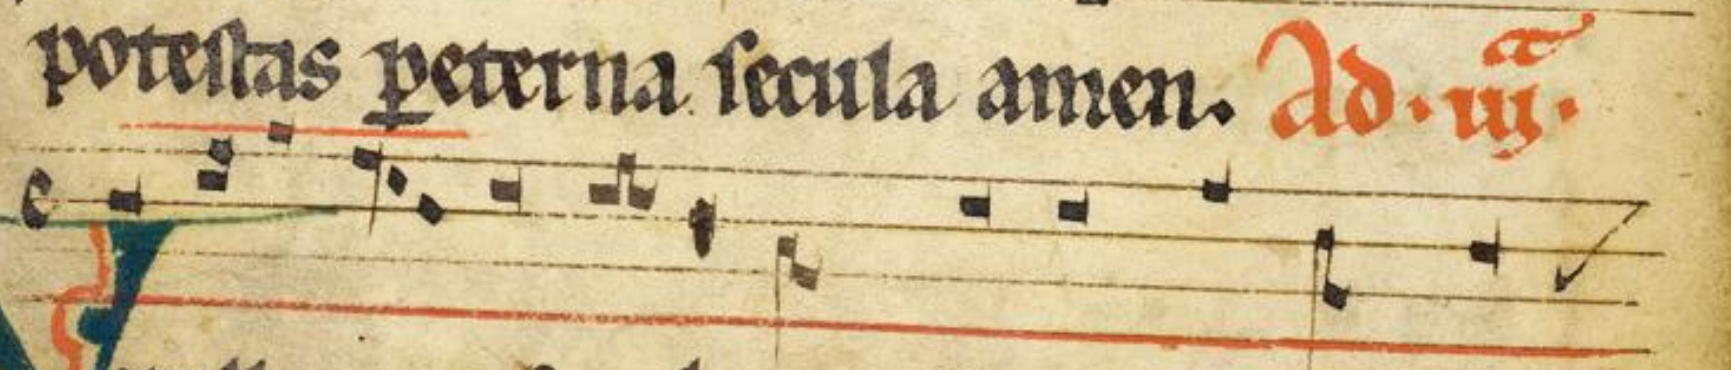 poteſtas ꝑeterna ſecula amen. Ad .iijᵃ.